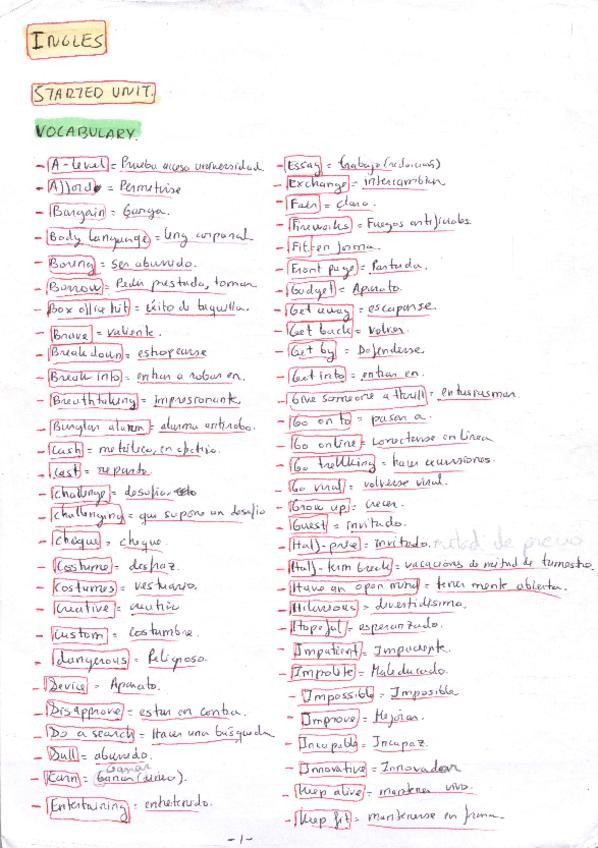 INGLES
STARTED UNIT.
VOCABULARY.
- A-level = Prueba acceso universidad
- Afford = Permitirse
- Bargain = Ganga.
- Body language = leng corporal
- Boring = Ser aburrido.
- Borrow = Pedir prestado, tomar
- Box office hit = éxito de taquilla.
- Brave = valiente.
- Break down = estropearse
- Break into = entrar a robar en.
- Breathtaking = impresionante
- Burglar alarm = alarma antirrobo.
- Cash = metálico, en efectivo.
- Cast = reparto.
- Challenge = desafio
- Challenging = que supone un desafio
- cheque = cheque.
- Costume = disfraz.
- Costumes = vestuario.
- Creative = creativo
- Custom = costumbre.
- dangerous = Peligroso.
- Device = Aparato.
- Disapprove = estar en contra.
- Do a search = Hacer una búsqueda
- Dull = aburrido.
- Earn = Ganar (dinero).
- Entertaining = entretenido.
- Essay = trabajo (redacción)
- Exchange = intercambiar
- Fair = claro.
- Fireworks = Fuegos artificiales
- Fit = en forma.
- Front page = Portada.
- Gadget = Aparato.
- Get away = escaparse.
- Get back = volver.
- Get by = Defenderse.
- Get into = entrar en.
- Give someone a thrill = entusiasmar.
- Go on to = pasar a.
- Go online = conectarse en linea
- Go trekking = hacer excursiones.
- Go viral = volverse viral.
- Grow up = crecer.
- Guest = invitado.
- Half-price = invitado. mitad de precio
- Half-term break = vacaciones de mitad de trimestre.
- Have an open mind = tener mente abierta.
- Hilarious = divertidisima.
- Hopeful = esperanzado.
- Impatient = Impaciente.
- Impolite = Maleducado.
- Impossible = Imposible
- Improve = Mejorar.
- Incapable = Incapaz.
- Innovative = Innovador
- Keep alive = mantener vivo.
- Keep fit = mantenerse en forma.
- 1 -